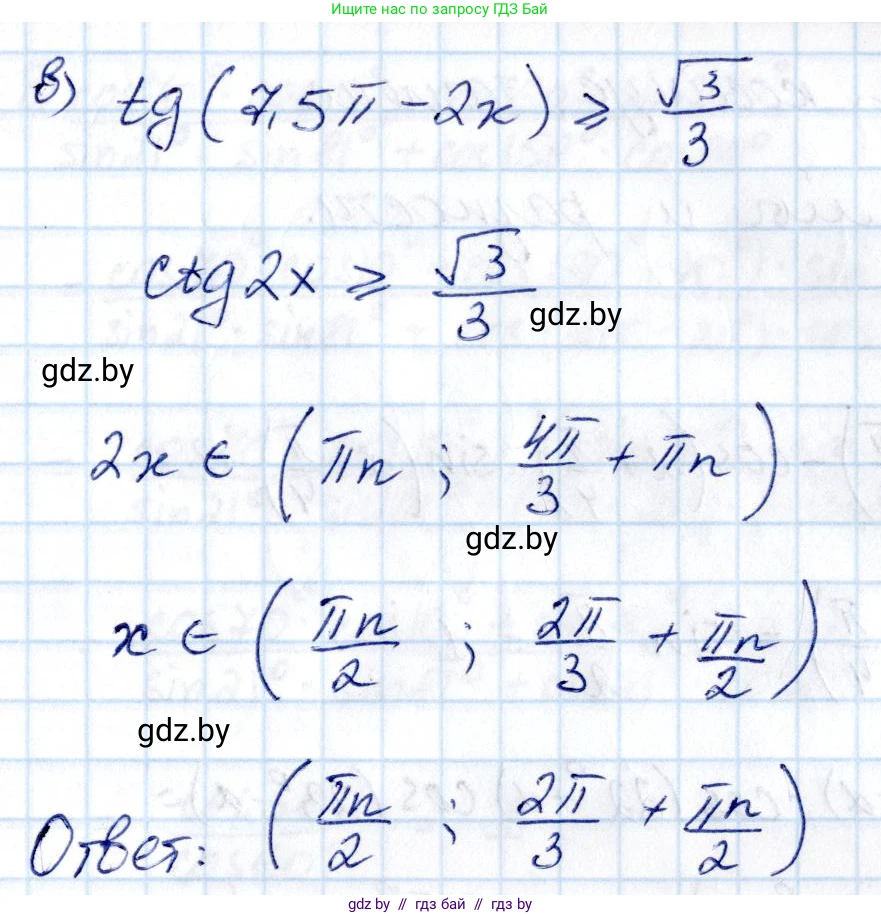 Ищите нас по запросу ГДЗ Бай
в) tg(7,5π - 2x) ≥ √3/3
ctg2x ≥ √3/3
gdz.by
gdz.by
2x ∈ (πn ; 4π/3 + πn)
gdz.by
x ∈ (πn/2 ; 2π/3 + πn/2)
gdz.by
Ответ: (πn/2 ; 2π/3 + πn/2)
gdz by // гдз бай // gdz by